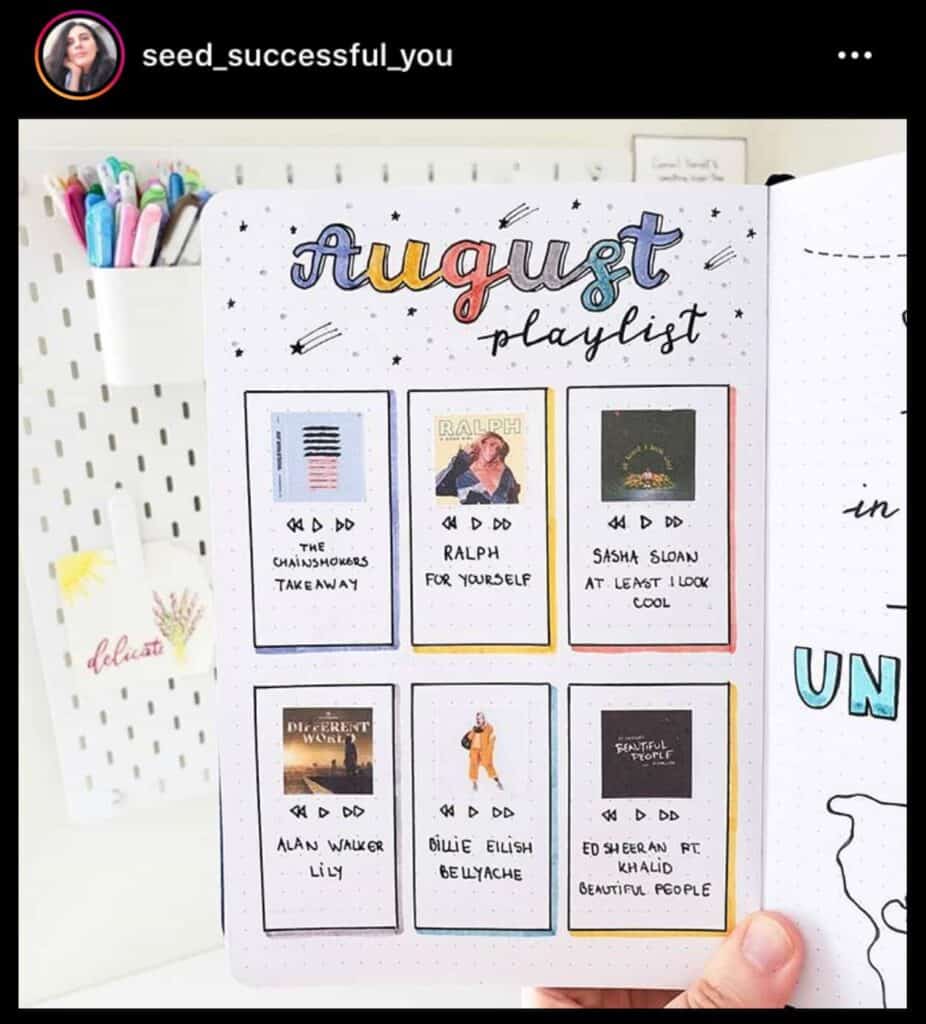 seed_successful_you
August
playlist
RALPH
THE
CHAINSMOKERS
TAKEAWAY
RALPH
FOR YOURSELF
SASHA SLOAN
AT LEAST I LOOK
COOL
DIFFERENT
WORLD
BEAUTIFUL
PEOPLE
ALAN WALKER
LILY
BILLIE EILISH
BELLYACHE
ED SHEERAN FT.
KHALID
BEAUTIFUL PEOPLE
delicate
in
UN